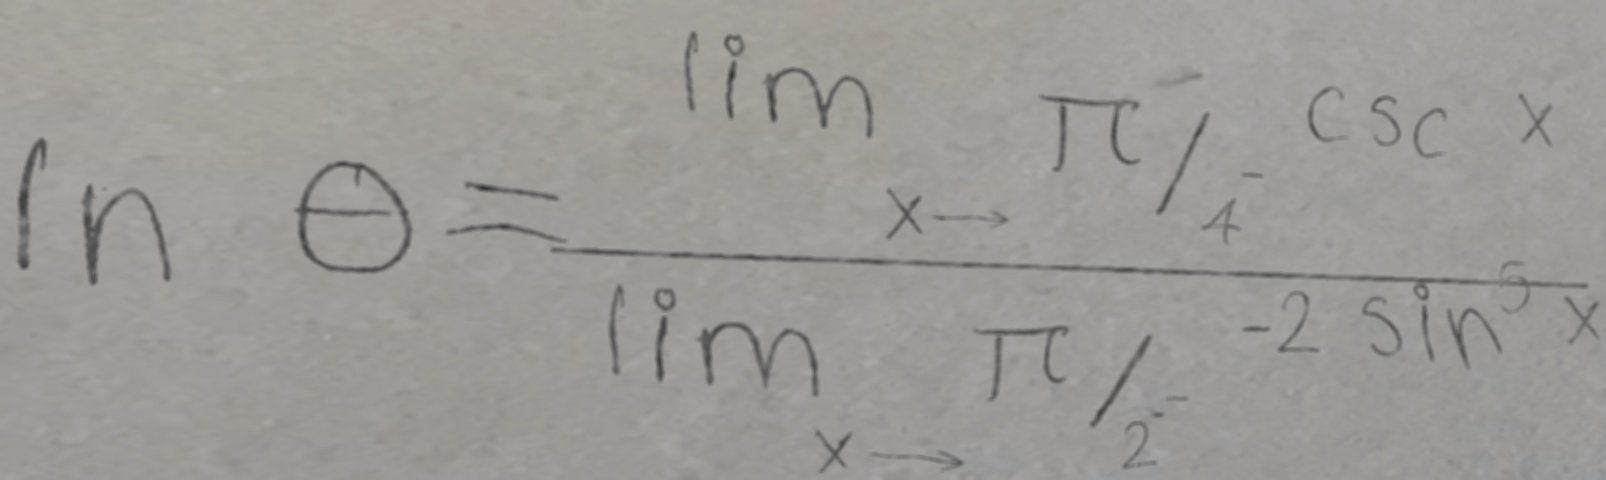 ln θ = lim x → π/4⁻ csc x
lim x → π/2⁻ -2 sin⁵ x